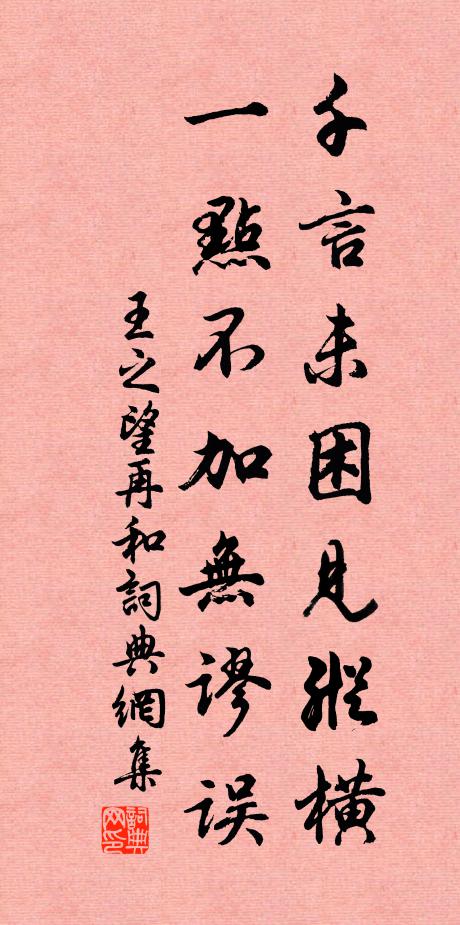 千言未困見縱橫
一點不加無謬误
王之望再和詞典網集
詞典
网印